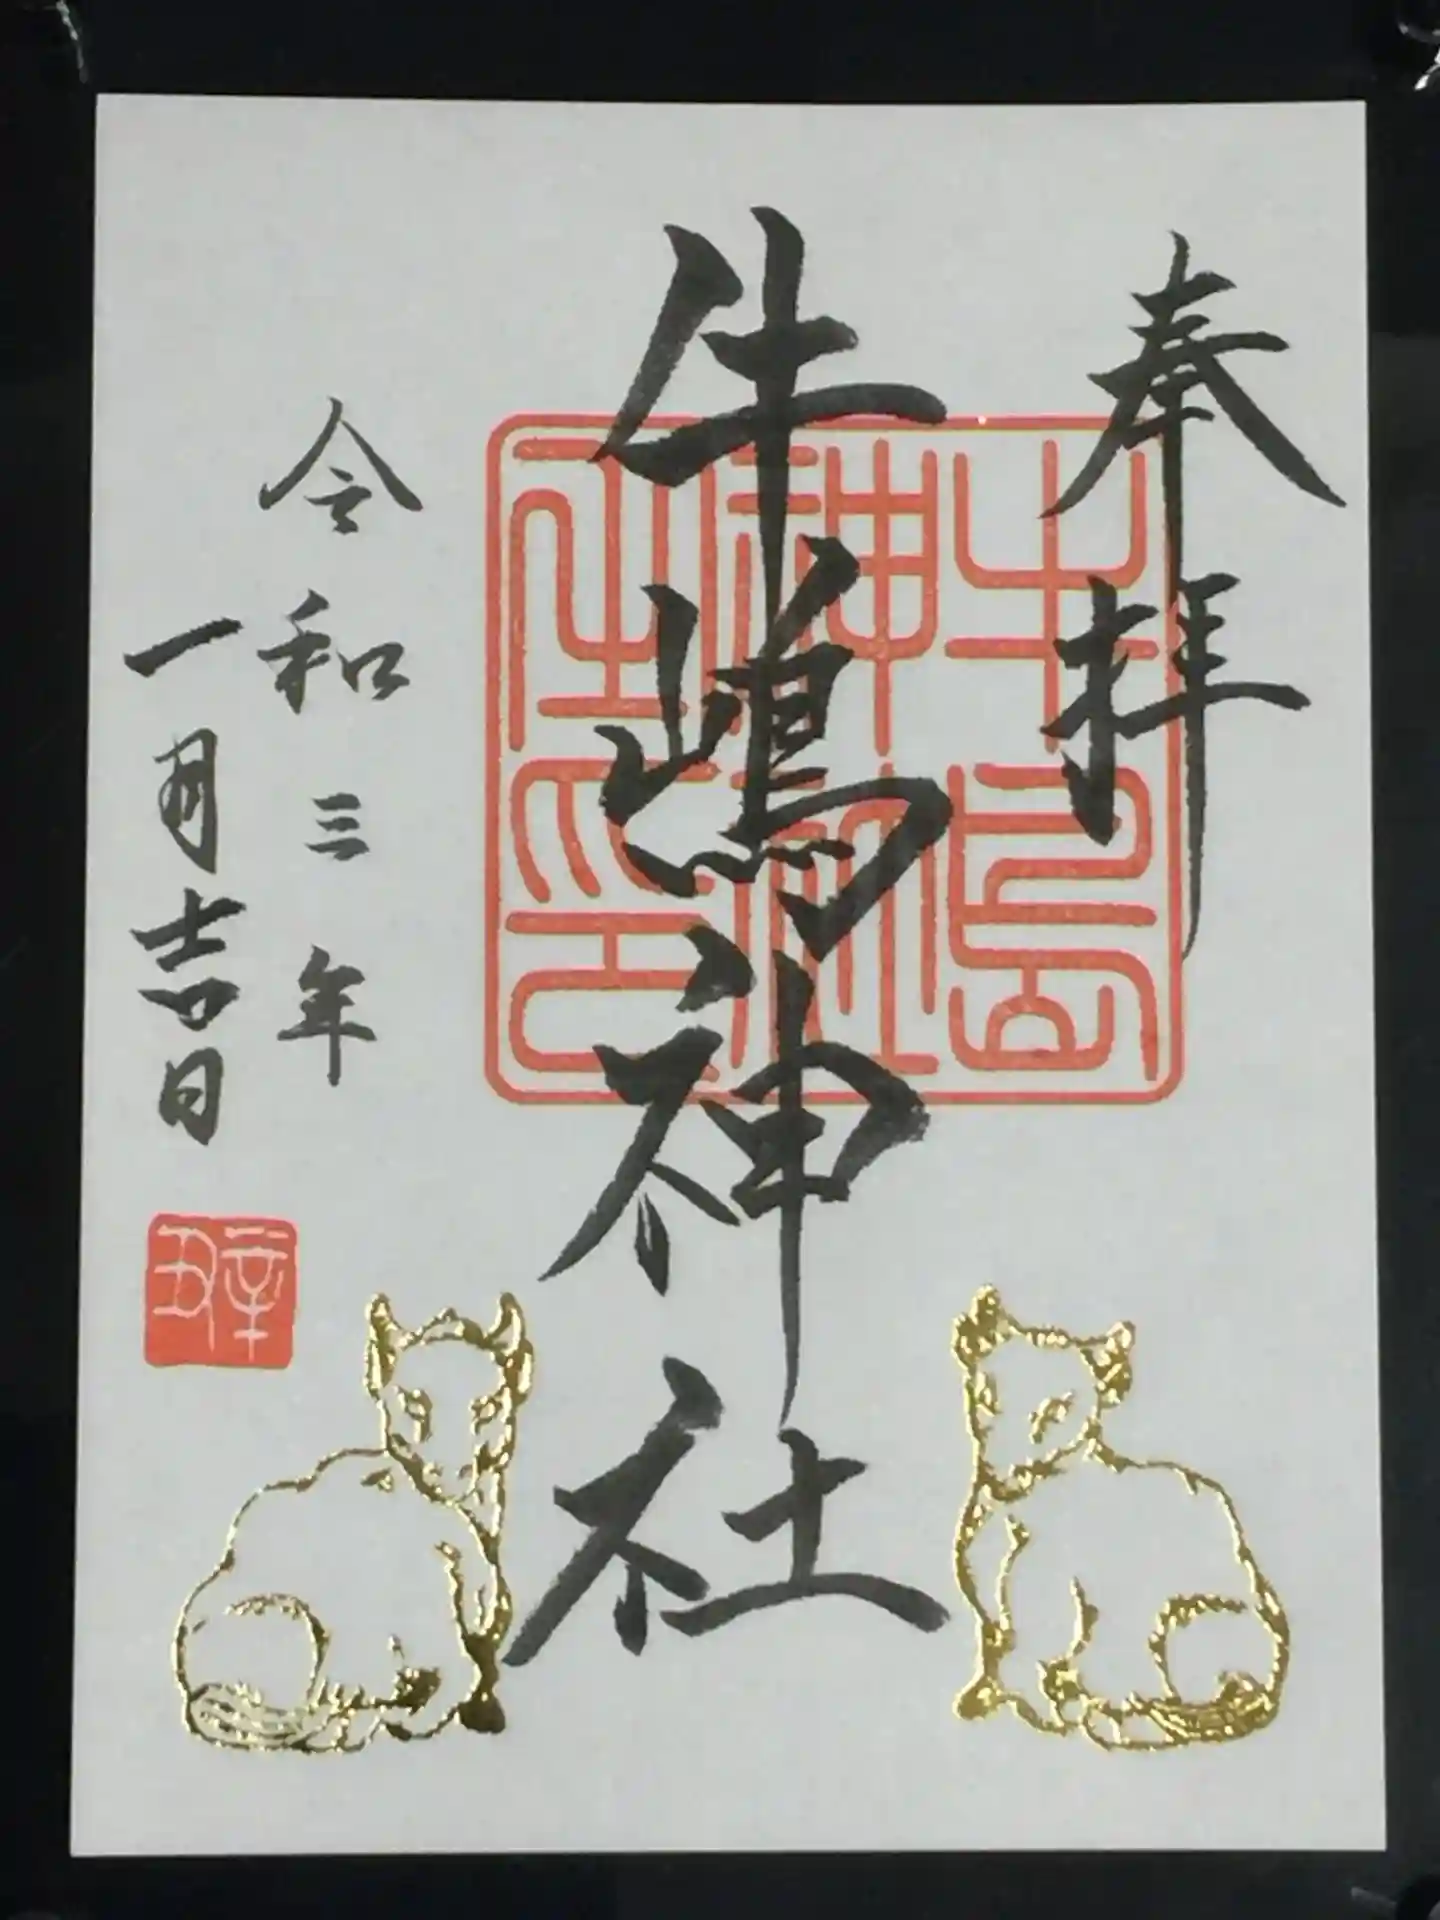 奉拝
牛嶋神社
牛嶋神社之印
令和三年
一月吉日
辛丑